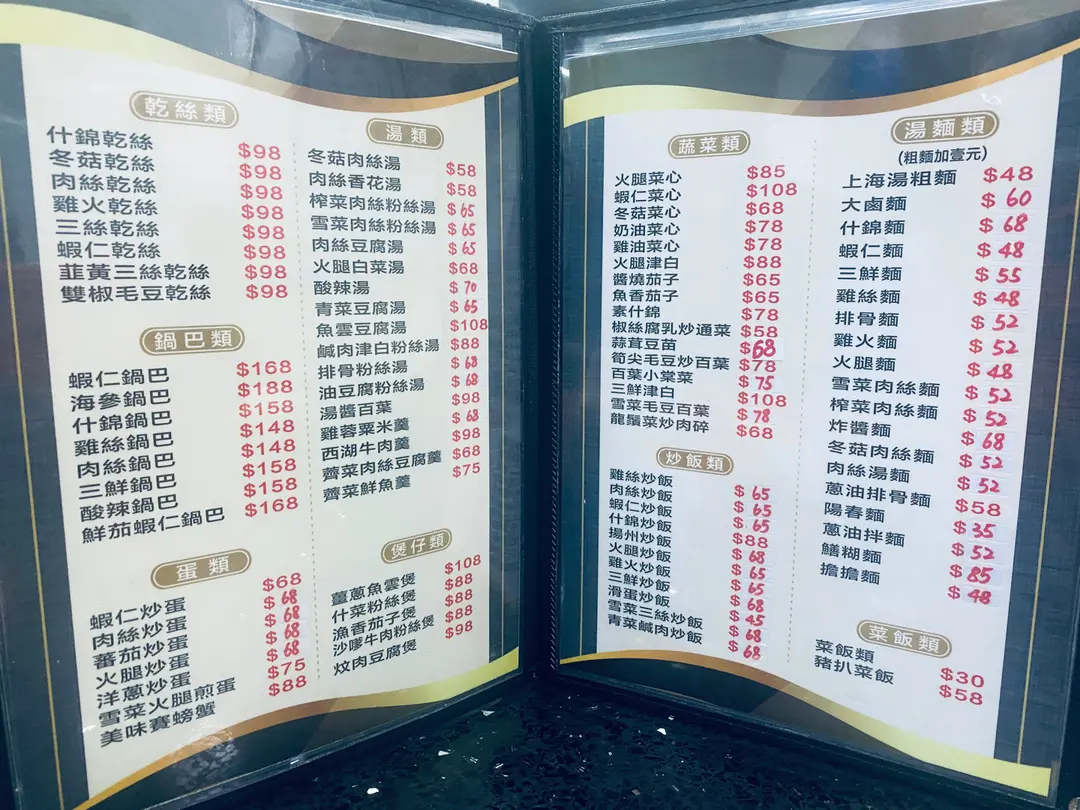 乾絲類
什錦乾絲 $98
冬菇乾絲 $98
肉絲乾絲 $98
雞火乾絲 $98
三絲乾絲 $98
蝦仁乾絲 $98
韮黃三絲乾絲 $98
雙椒毛豆乾絲 $98
鍋巴類
蝦仁鍋巴 $168
海參鍋巴 $188
什錦鍋巴 $158
雞絲鍋巴 $148
肉絲鍋巴 $148
三鮮鍋巴 $158
酸辣鍋巴 $158
鮮茄蝦仁鍋巴 $168
蛋類
蝦仁炒蛋 $68
肉絲炒蛋 $68
蕃茄炒蛋 $68
火腿炒蛋 $68
洋蔥炒蛋 $68
雪菜火腿煎蛋 $75
美味賽螃蟹 $88
湯類
冬菇肉絲湯 $58
肉絲香花湯 $58
榨菜肉絲粉絲湯 $65
雪菜肉絲粉絲湯 $65
肉絲豆腐湯 $65
火腿白菜湯 $68
酸辣湯 $70
青菜豆腐湯 $65
魚雲豆腐湯 $108
鹹肉津白粉絲湯 $88
排骨粉絲湯 $68
油豆腐粉絲湯 $68
湯醬百葉 $98
雞蓉粟米羹 $68
西湖牛肉羹 $98
薺菜肉絲豆腐羹 $68
薺菜鮮魚羹 $75
煲仔類
薑蔥魚雲煲 $108
什菜粉絲煲 $88
漁香茄子煲 $88
沙嗲牛肉粉絲煲 $88
炆肉豆腐煲 $98
蔬菜類
火腿菜心 $85
蝦仁菜心 $108
冬菇菜心 $68
奶油菜心 $78
雞油菜心 $78
火腿津白 $88
醬燒茄子 $65
魚香茄子 $65
素什錦 $78
椒絲腐乳炒通菜 $58
蒜茸豆苗 $68
筍尖毛豆炒百葉 $78
百葉小棠菜 $75
三鮮津白 $108
雪菜毛豆百葉 $78
龍鬚菜炒肉碎 $68
炒飯類
雞絲炒飯 $65
肉絲炒飯 $65
蝦仁炒飯 $65
什錦炒飯 $88
揚州炒飯 $68
火腿炒飯 $65
雞火炒飯 $65
三鮮炒飯 $68
滑蛋炒飯 $45
雪菜三絲炒飯 $68
青菜鹹肉炒飯 $68
湯麵類
(粗麵加壹元)
上海湯粗麵 $48
大鹵麵 $60
什錦麵 $68
蝦仁麵 $48
三鮮麵 $55
雞絲麵 $48
排骨麵 $52
雞火麵 $52
火腿麵 $48
雪菜肉絲麵 $52
榨菜肉絲麵 $52
炸醬麵 $68
冬菇肉絲麵 $52
肉絲湯麵 $52
蔥油排骨麵 $58
陽春麵 $35
蔥油拌麵 $52
鱔糊麵 $85
擔擔麵 $48
菜飯類
菜飯類 $30
豬扒菜飯 $58